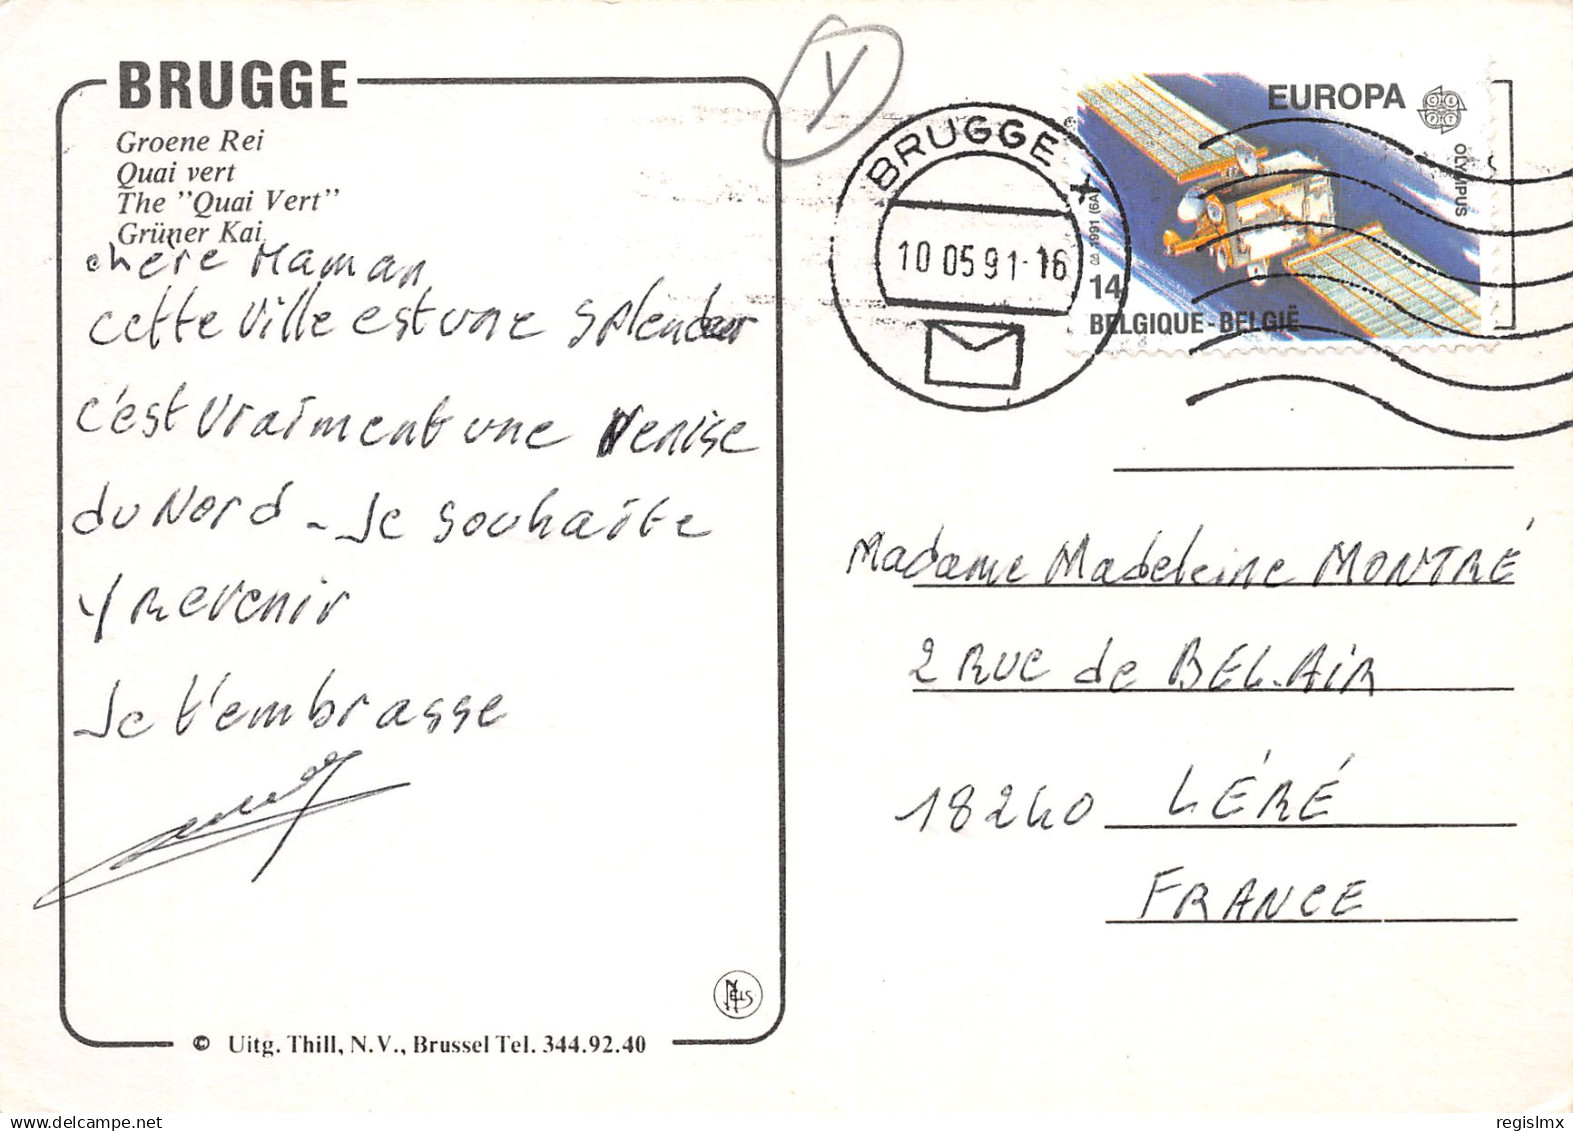 BRUGGE
Groene Rei
Quai vert
The "Quai Vert"
Grüner Kai
chère Maman
cette ville est une splendeur
c'est vraiment une Venise
du Nord - Je souhaite
y revenir
Je t'embrasse
© Uitg. Thill, N.V., Brussel Tel. 344.92.40
NELS
Y
BRUGGE X
10 05 91-16
EUROPA
CEPT
OLYMPUS
1991 (6A)
14
BELGIQUE-BELGIË
Madame Madeleine MONTRÉ
2 RUE de BEL-AIR
18240 LÉRÉ
FRANCE
regislmx